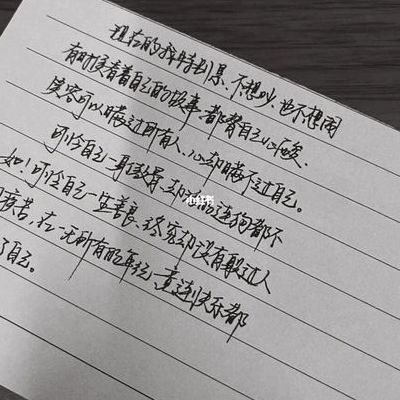 现在的我特别累、不想吵、也不想闹
有时候看着自己的故事、都替自己心酸、
笑容可以瞒过所有人、心却瞒不过自己。
可怜自己一身傲骨、却活的连狗都不
如！可怜自己一生善良、终究却没有敌过人
间疾苦，在一无所有的年纪、竟连快乐都
了自己。
小红书